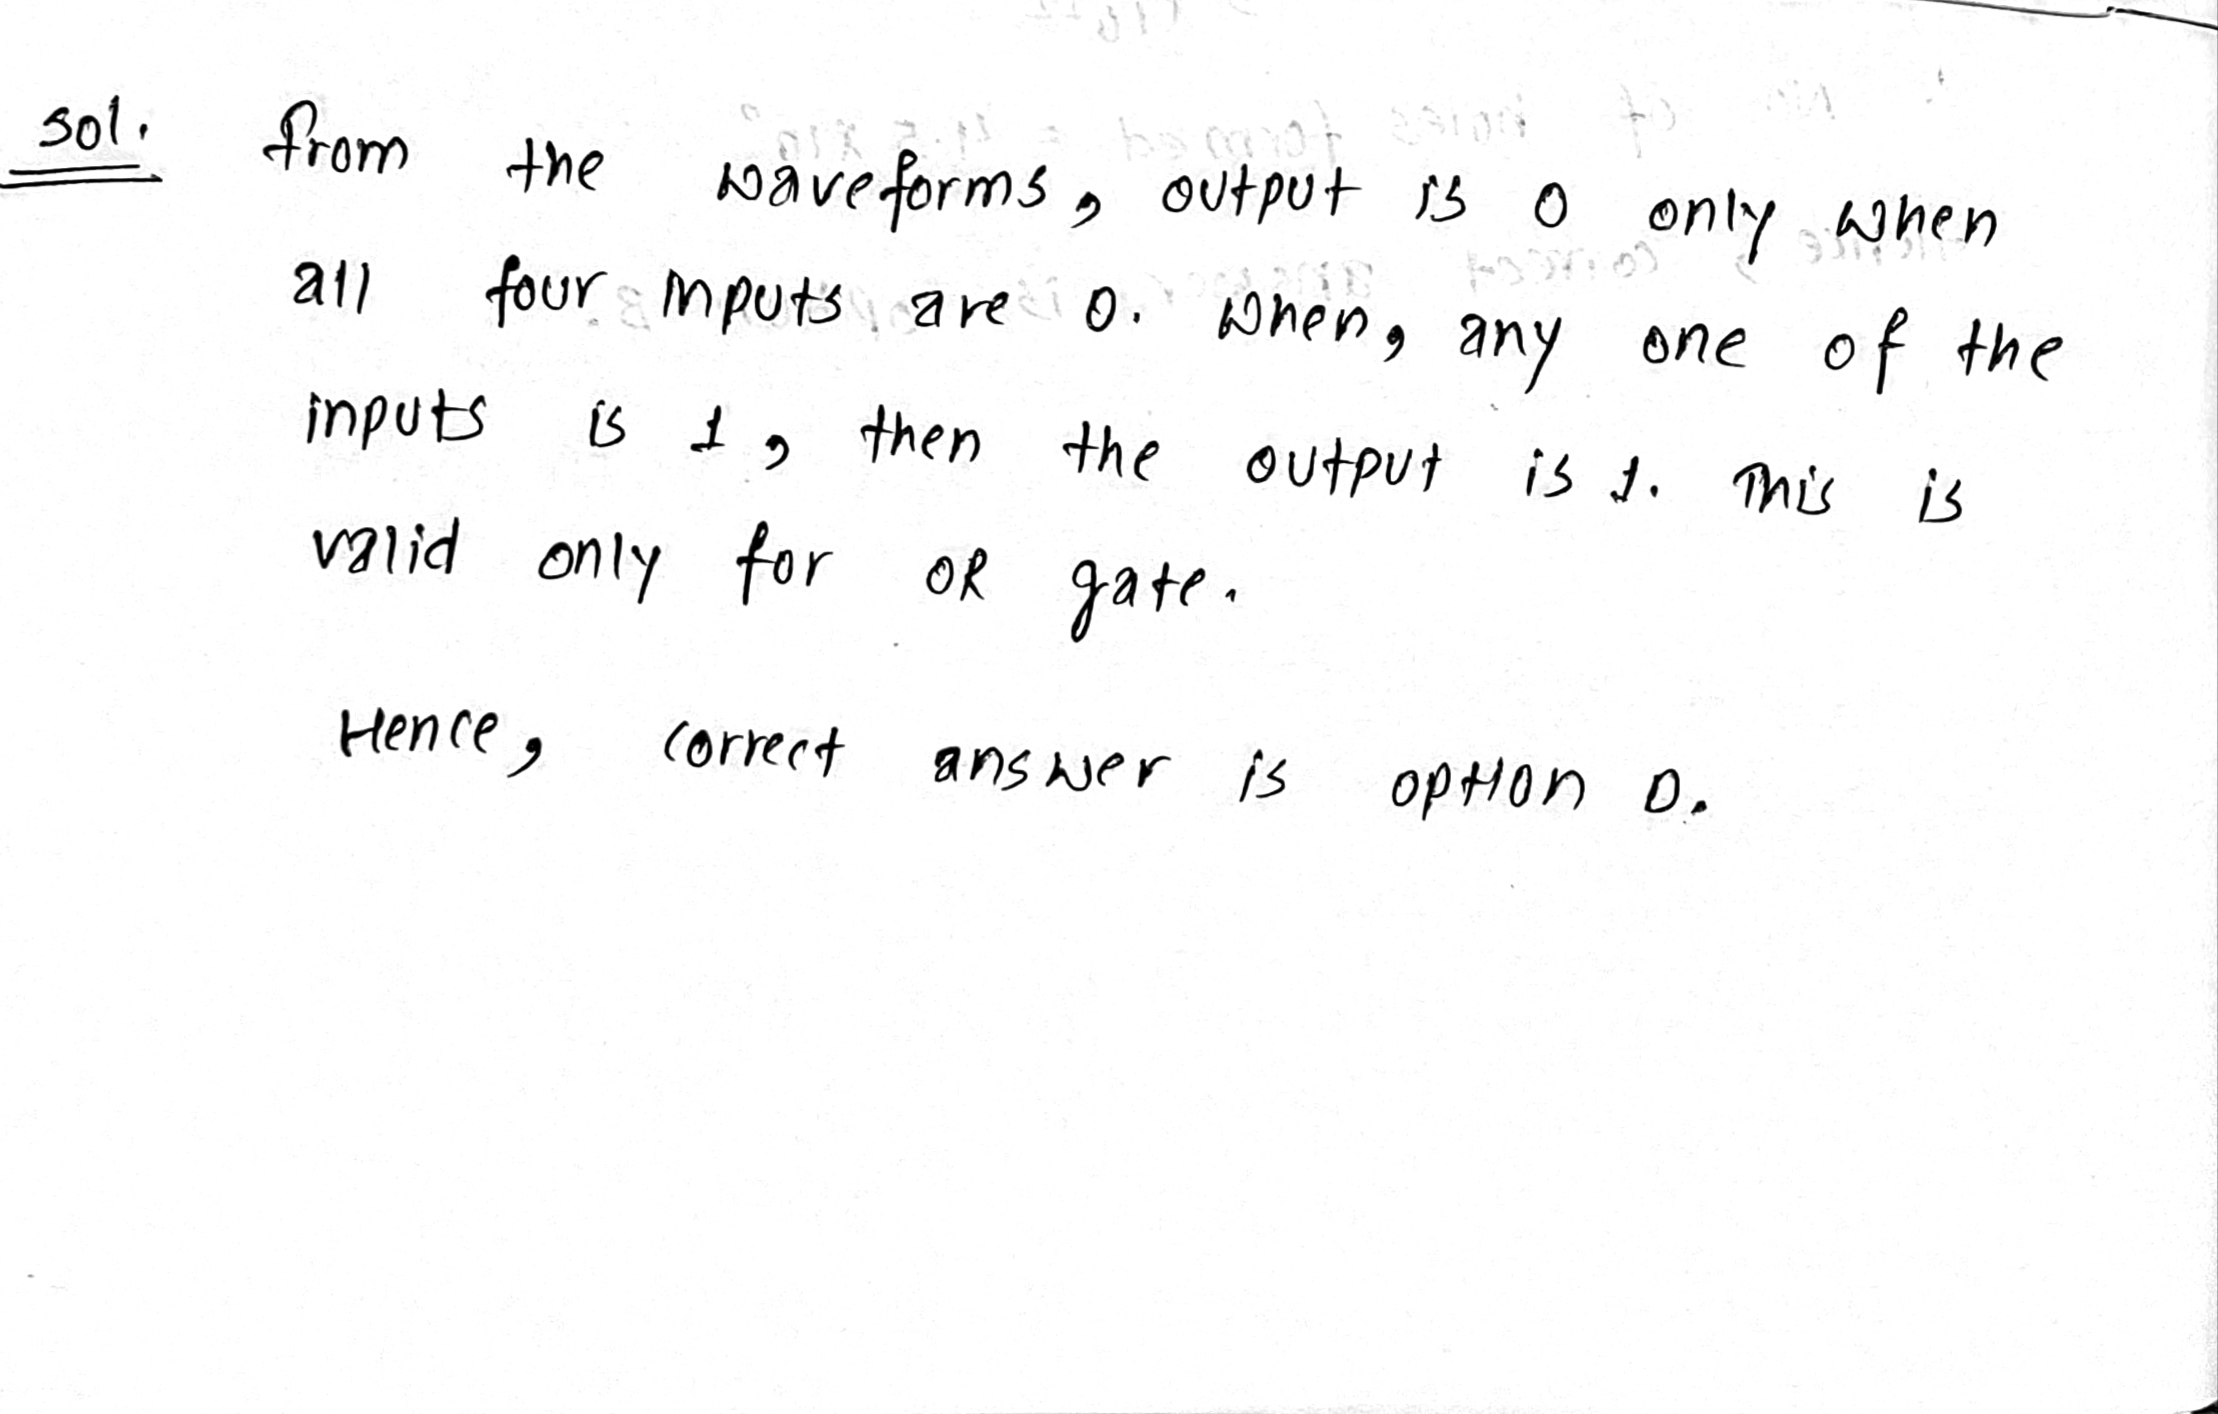 sol. from the waveforms, output is 0 only when
all four inputs are 0. when, any one of the
inputs is 1, then the output is 1. This is
valid only for OR gate.
Hence, correct answer is option D.